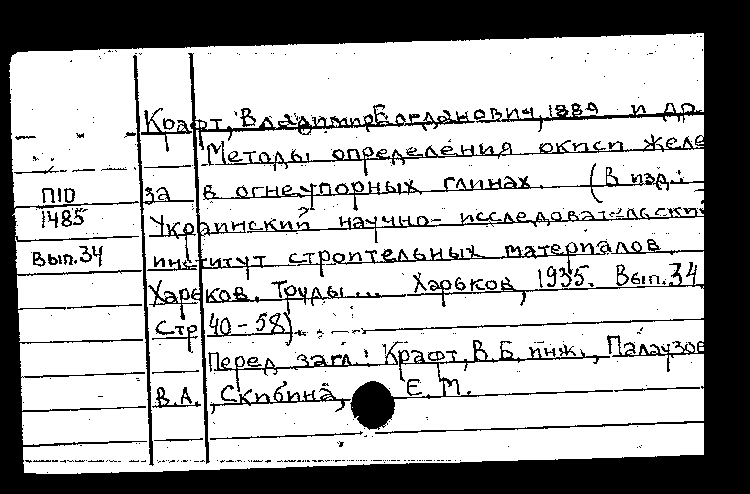 Крафт, Владимир Богданович, 1889 и др.
Методы определения окиси желе
П10 за в огнеупорных глинах. (В изд.:
1485 Украинский научно-исследовательский
Вып.34 институт строительных материалов
Харьков. Труды... Харьков, 1935. Вып.34
Стр 40-58).
Перед загл.: Крафт, В.Б. инж., Палаузов
В.А., Скибина, Е.М.